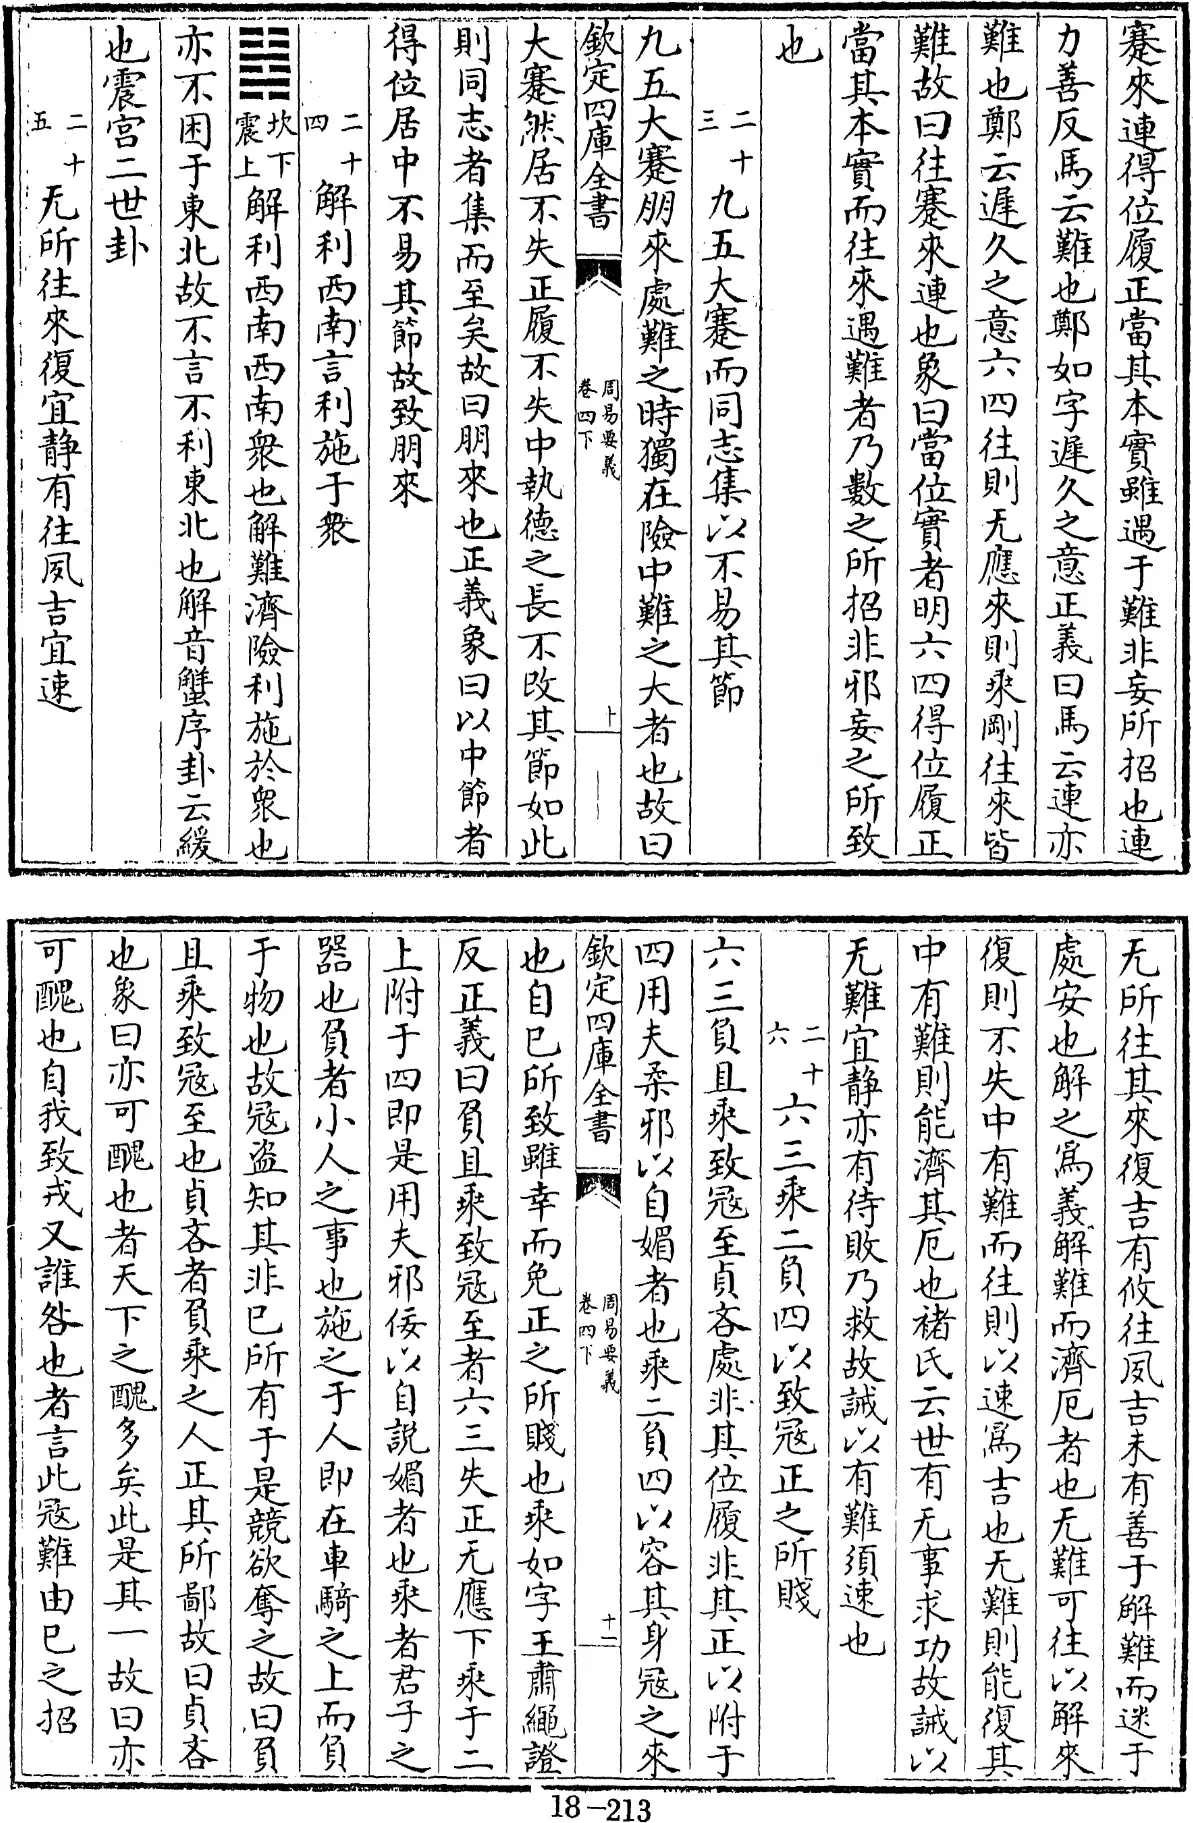 蹇來連得位履正當其本實雖遇于難非妄所招也連
力善反馬云難也鄭如字遲久之意正義曰馬云連亦
難也鄭云遲久之意六四往則无應來則乘剛往來皆
難故曰往蹇來連也象曰當位實者明六四得位履正
當其本實而往來遇難者乃數之所招非邪妄之所致
也
二十三 九五大蹇而同志集以不易其節
九五大蹇朋來處難之時獨在險中難之大者也故曰
欽定四庫全書 周易要義 卷四下
大蹇然居不失正履不失中執德之長不改其節如此
則同志者集而至矣故曰朋來也正義象曰以中節者
得位居中不易其節故致朋來
二十四 解利西南言利施于衆
䷧ 坎下震上 解利西南西南衆也解難濟險利施於衆也
亦不困于東北故不言不利東北也解音蟹序卦云緩
也震宫二世卦
二十五 无所往來復宜静有往夙吉宜速
无所往其來復吉有攸往夙吉未有善于解難而迷于
處安也解之爲義解難而濟厄者也无難可往以解來
復則不失中有難而往則以速爲吉也无難則能復其
中有難則能濟其厄也褚氏云世有无事求功故誡以
无難宜静亦有待敗乃救故誡以有難須速也
二十六 六三乘二負四以致寇正之所賤
六三負且乘致寇至貞吝處非其位履非其正以附于
四用夫柔邪以自媚者也乘二負四以容其身寇之來
欽定四庫全書 周易要義 卷四下 十二
也自已所致雖幸而免正之所賤也乘如字王肅繩證
反正義曰負且乘致寇至者六三失正无應下乘于二
上附于四即是用夫邪佞以自説媚者也乘者君子之
器也負者小人之事也施之于人即在車騎之上而負
于物也故寇盗知其非已所有于是競欲奪之故曰負
且乘致寇至也貞吝者負乘之人正其所鄙故曰貞吝
也象曰亦可醜也者天下之醜多矣此是其一故曰亦
可醜也自我致戎又誰咎也者言此寇難由已之招
18-213